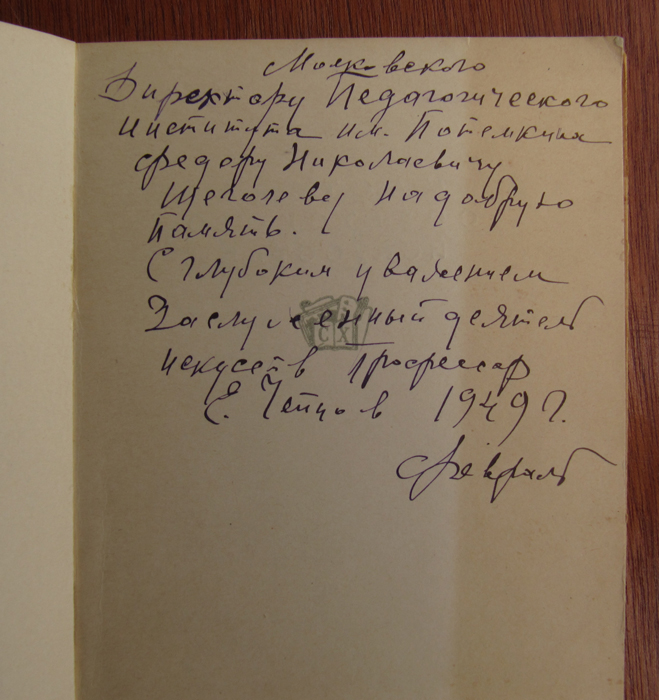 Московского
Директору Педагогического
института им. Потемкина
Федору Николаевичу
Щеголеву на добрую
память.
С глубоким уважением
Заслуженный деятель
искусств профессор
Е. Чепцов 1949 г.
февраль
СХ